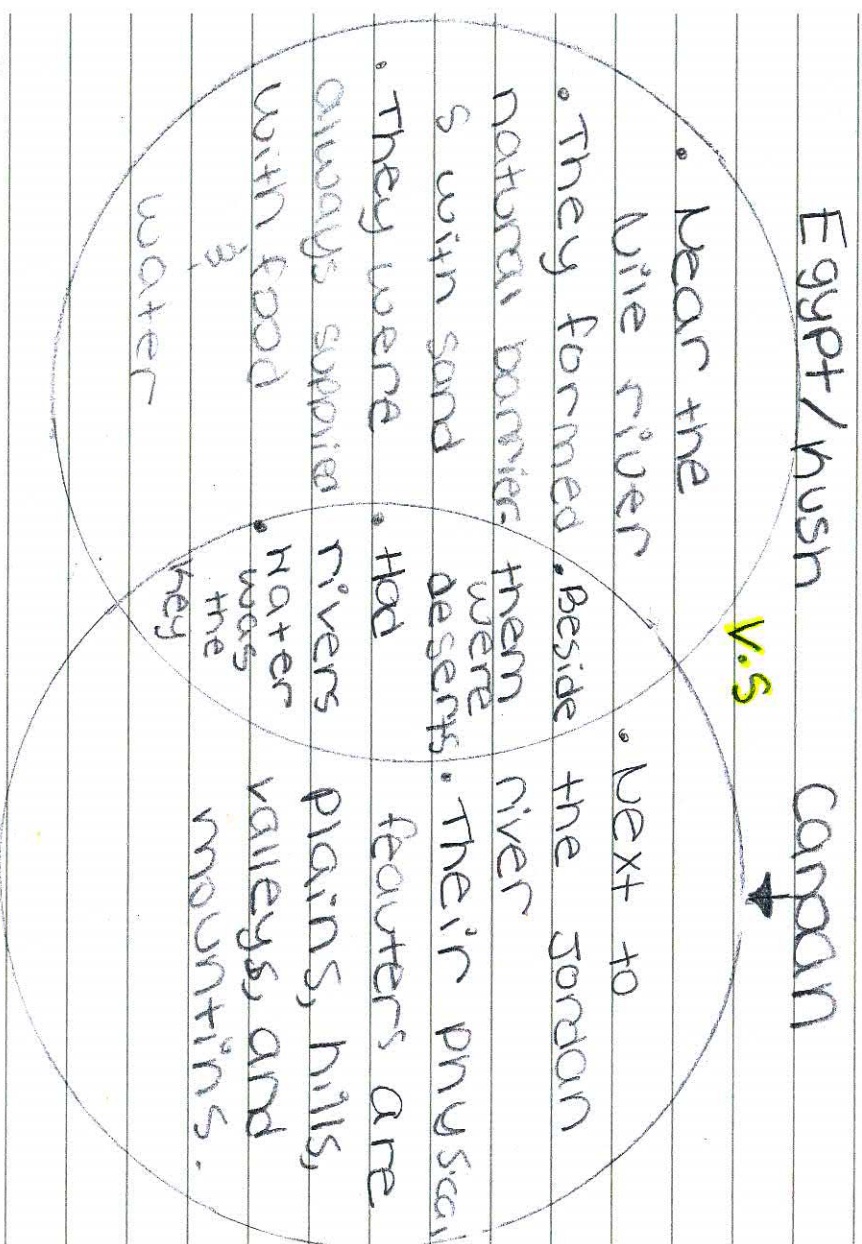 Egypt/kush
V.S
Canaan
• Near the
Nile river
• They formed
natural barrier
s with sand
• They were
always supplied
with food
&
water
• Beside
them
were
deserts
• Had
rivers
• Water
was
the
key
• Next to
the Jordan
river
• Their physical
feauters are
plains, hills,
valleys, and
mountins.